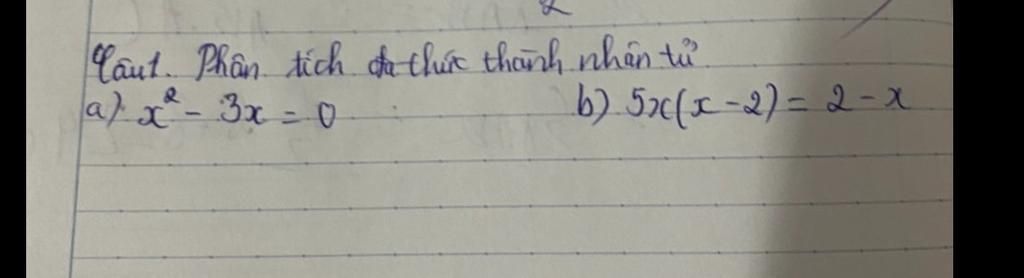 Câu1. Phân tích đa thức thành nhân tử
a) x² - 3x = 0 b) 5x(x-2) = 2 - x